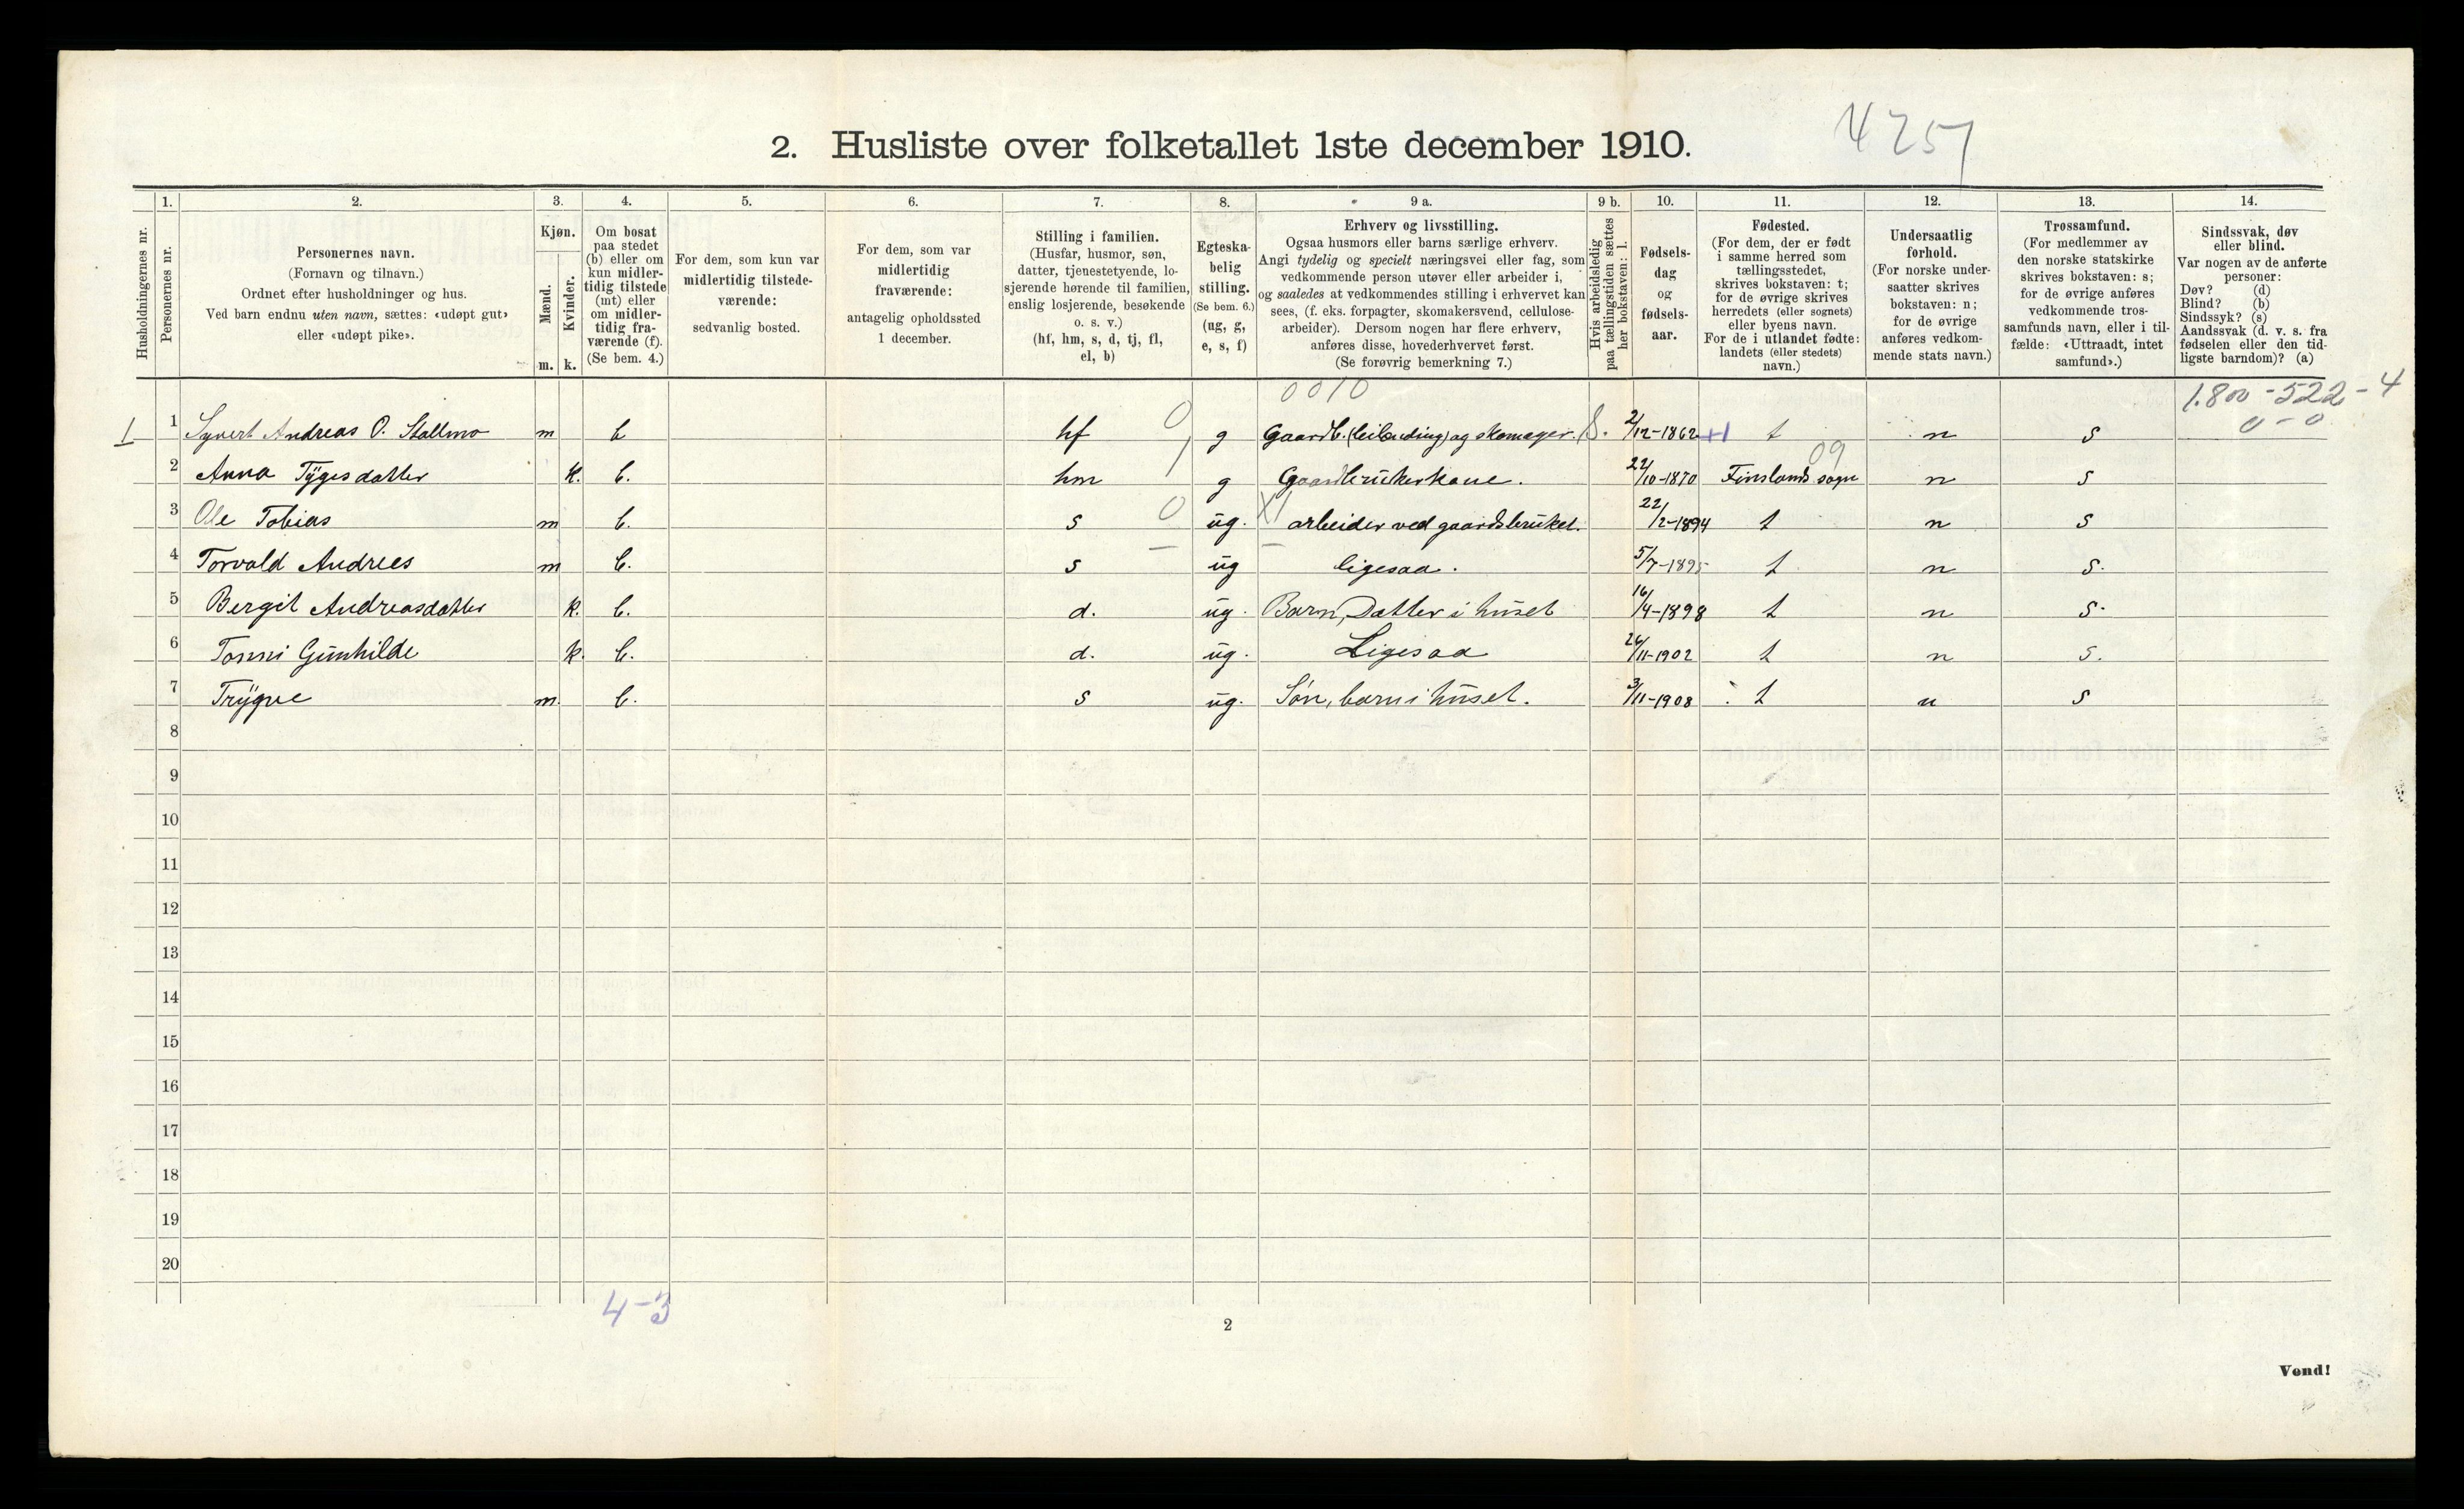 4257
2. Husliste over folketallet 1ste december 1910.
1. 2. 3. 4. 5. 6. 7. 8. 9 a. 9 b. 10. 11. 12. 13. 14.
Husholdningernes nr.
Personernes nr.
Personernes navn.
(Fornavn og tilnavn.)
Ordnet efter husholdninger og hus.
Ved barn endnu uten navn, sættes: «udøpt gut»
eller «udøpt pike».
Kjøn.
Mænd.
Kvinder.
m. k.
Om bosat
paa stedet
(b) eller om
kun midler-
tidig tilstede
(mt) eller
om midler-
tidig fra-
værende (f).
(Se bem. 4.)
For dem, som kun var
midlertidig tilstede-
værende:
sedvanlig bosted.
For dem, som var
midlertidig
fraværende:
antagelig opholdssted
1 december.
Stilling i familien.
(Husfar, husmor, søn,
datter, tjenestetyende, lo-
sjerende hørende til familien,
enslig losjerende, besøkende
o. s. v.)
(hf, hm, s, d, tj, fl,
el, b)
Egteska-
belig
stilling.
(Se bem. 6.)
(ug, g,
e, s, f)
Erhverv og livsstilling.
Ogsaa husmors eller barns særlige erhverv.
Angi tydelig og specielt næringsvei eller fag, som
vedkommende person utøver eller arbeider i,
og saaledes at vedkommendes stilling i erhvervet kan
sees, (f. eks. forpagter, skomakersvend, cellulose-
arbeider). Dersom nogen har flere erhverv,
anføres disse, hovederhvervet først.
(Se forøvrig bemerkning 7.)
Hvis arbeidsledig
paa tællingstiden sættes
her bokstaven: l.
Fødsels-
dag
og
fødsels-
aar.
Fødested.
(For dem, der er født
i samme herred som
tællingsstedet,
skrives bokstaven: t;
for de øvrige skrives
herredets (eller sognets)
eller byens navn.
For de i utlandet fødte:
landets (eller stedets)
navn.)
Undersaatlig
forhold.
(For norske under-
saatter skrives
bokstaven: n;
for de øvrige
anføres vedkom-
mende stats navn.)
Trossamfund.
(For medlemmer av
den norske statskirke
skrives bokstaven: s;
for de øvrige anføres
vedkommende tros-
samfunds navn, eller i til-
fælde: «Uttraadt, intet
samfund».)
Sindssvak, døv
eller blind.
Var nogen av de anførte
personer:
Døv? (d)
Blind? (b)
Sindssyk? (s)
Aandssvak (d. v. s. fra
fødselen eller den tid-
ligste barndom)? (a)
0010
1.800-522-4
0-0
1 1 Syvert Andreas O. Stallmo m b hf 0 g Gaardb. (leilending) og skomager. 2/12-1862 +1 t n s
09
2 Anna Tÿgesdatter k. b. hm g Gaardbrukerkone. 22/10-1870 Finslands sogn n s
3 Ole Tobias m b. s 0 ug. X1 arbeider ved gaardsbruket. 22/2-1894 t n s
4 Torvald Andreas m b. s ug ligesaa. 5/7-1895 t n s.
5 Bergit Andreasdatter k. b. d. ug. Barn, Datter i huset 16/4-1898 t n s.
6 Tonni Gunhilde k. b. d. ug. Ligesaa 26/11-1902 t n s.
7 Trÿgve m. b. s ug. Søn, barn i huset. 3/11-1908 t n s
8
9
10
11
12
13
14
15
16
17
18
19
20
4-3
2
Vend!